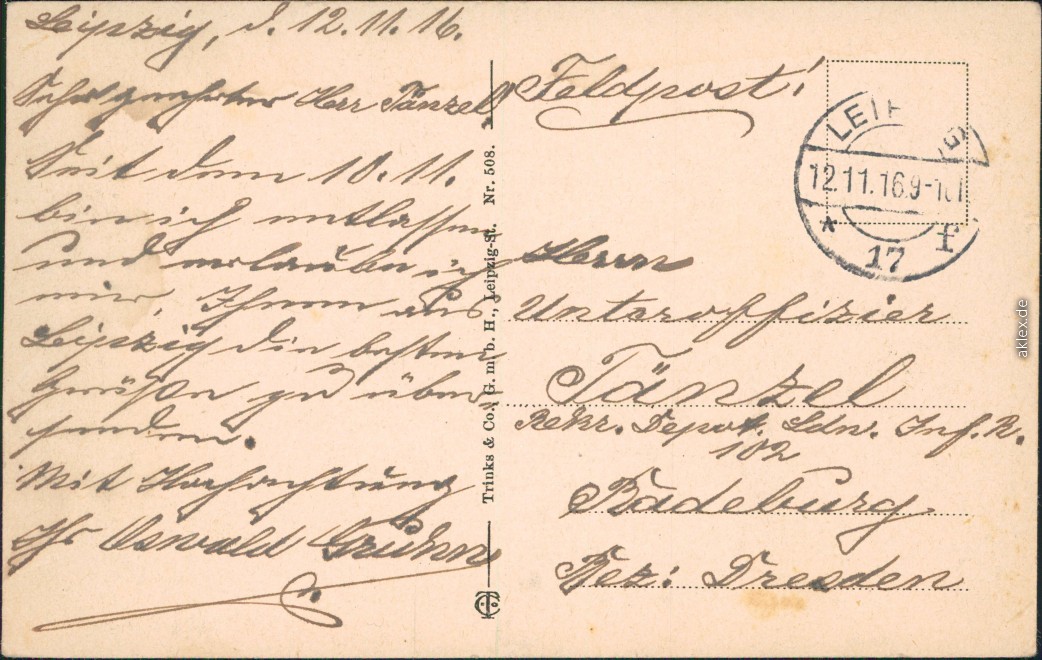 Leipzig, d. 12.11.16.
Sehr geehrter Herr Tänzel!
Seit dem 10.11.
bin ich entlassen
und erlaube ich
mir, Ihnen aus
Leipzig die besten
Grüßen zu über
senden.
Mit Hochachtung
Ihr Oswald
Trinks & Co., G. m. b. H., Leipzig-St. Nr. 508.
Feldpost!
LEIP G
12.11.16.9-10
* 17 f
Herrn
Unteroffizier
Tänzel
Rekr. Depot. Ldw. Inf. R.
102
Radeburg
Bez: Dresden
aklex.de